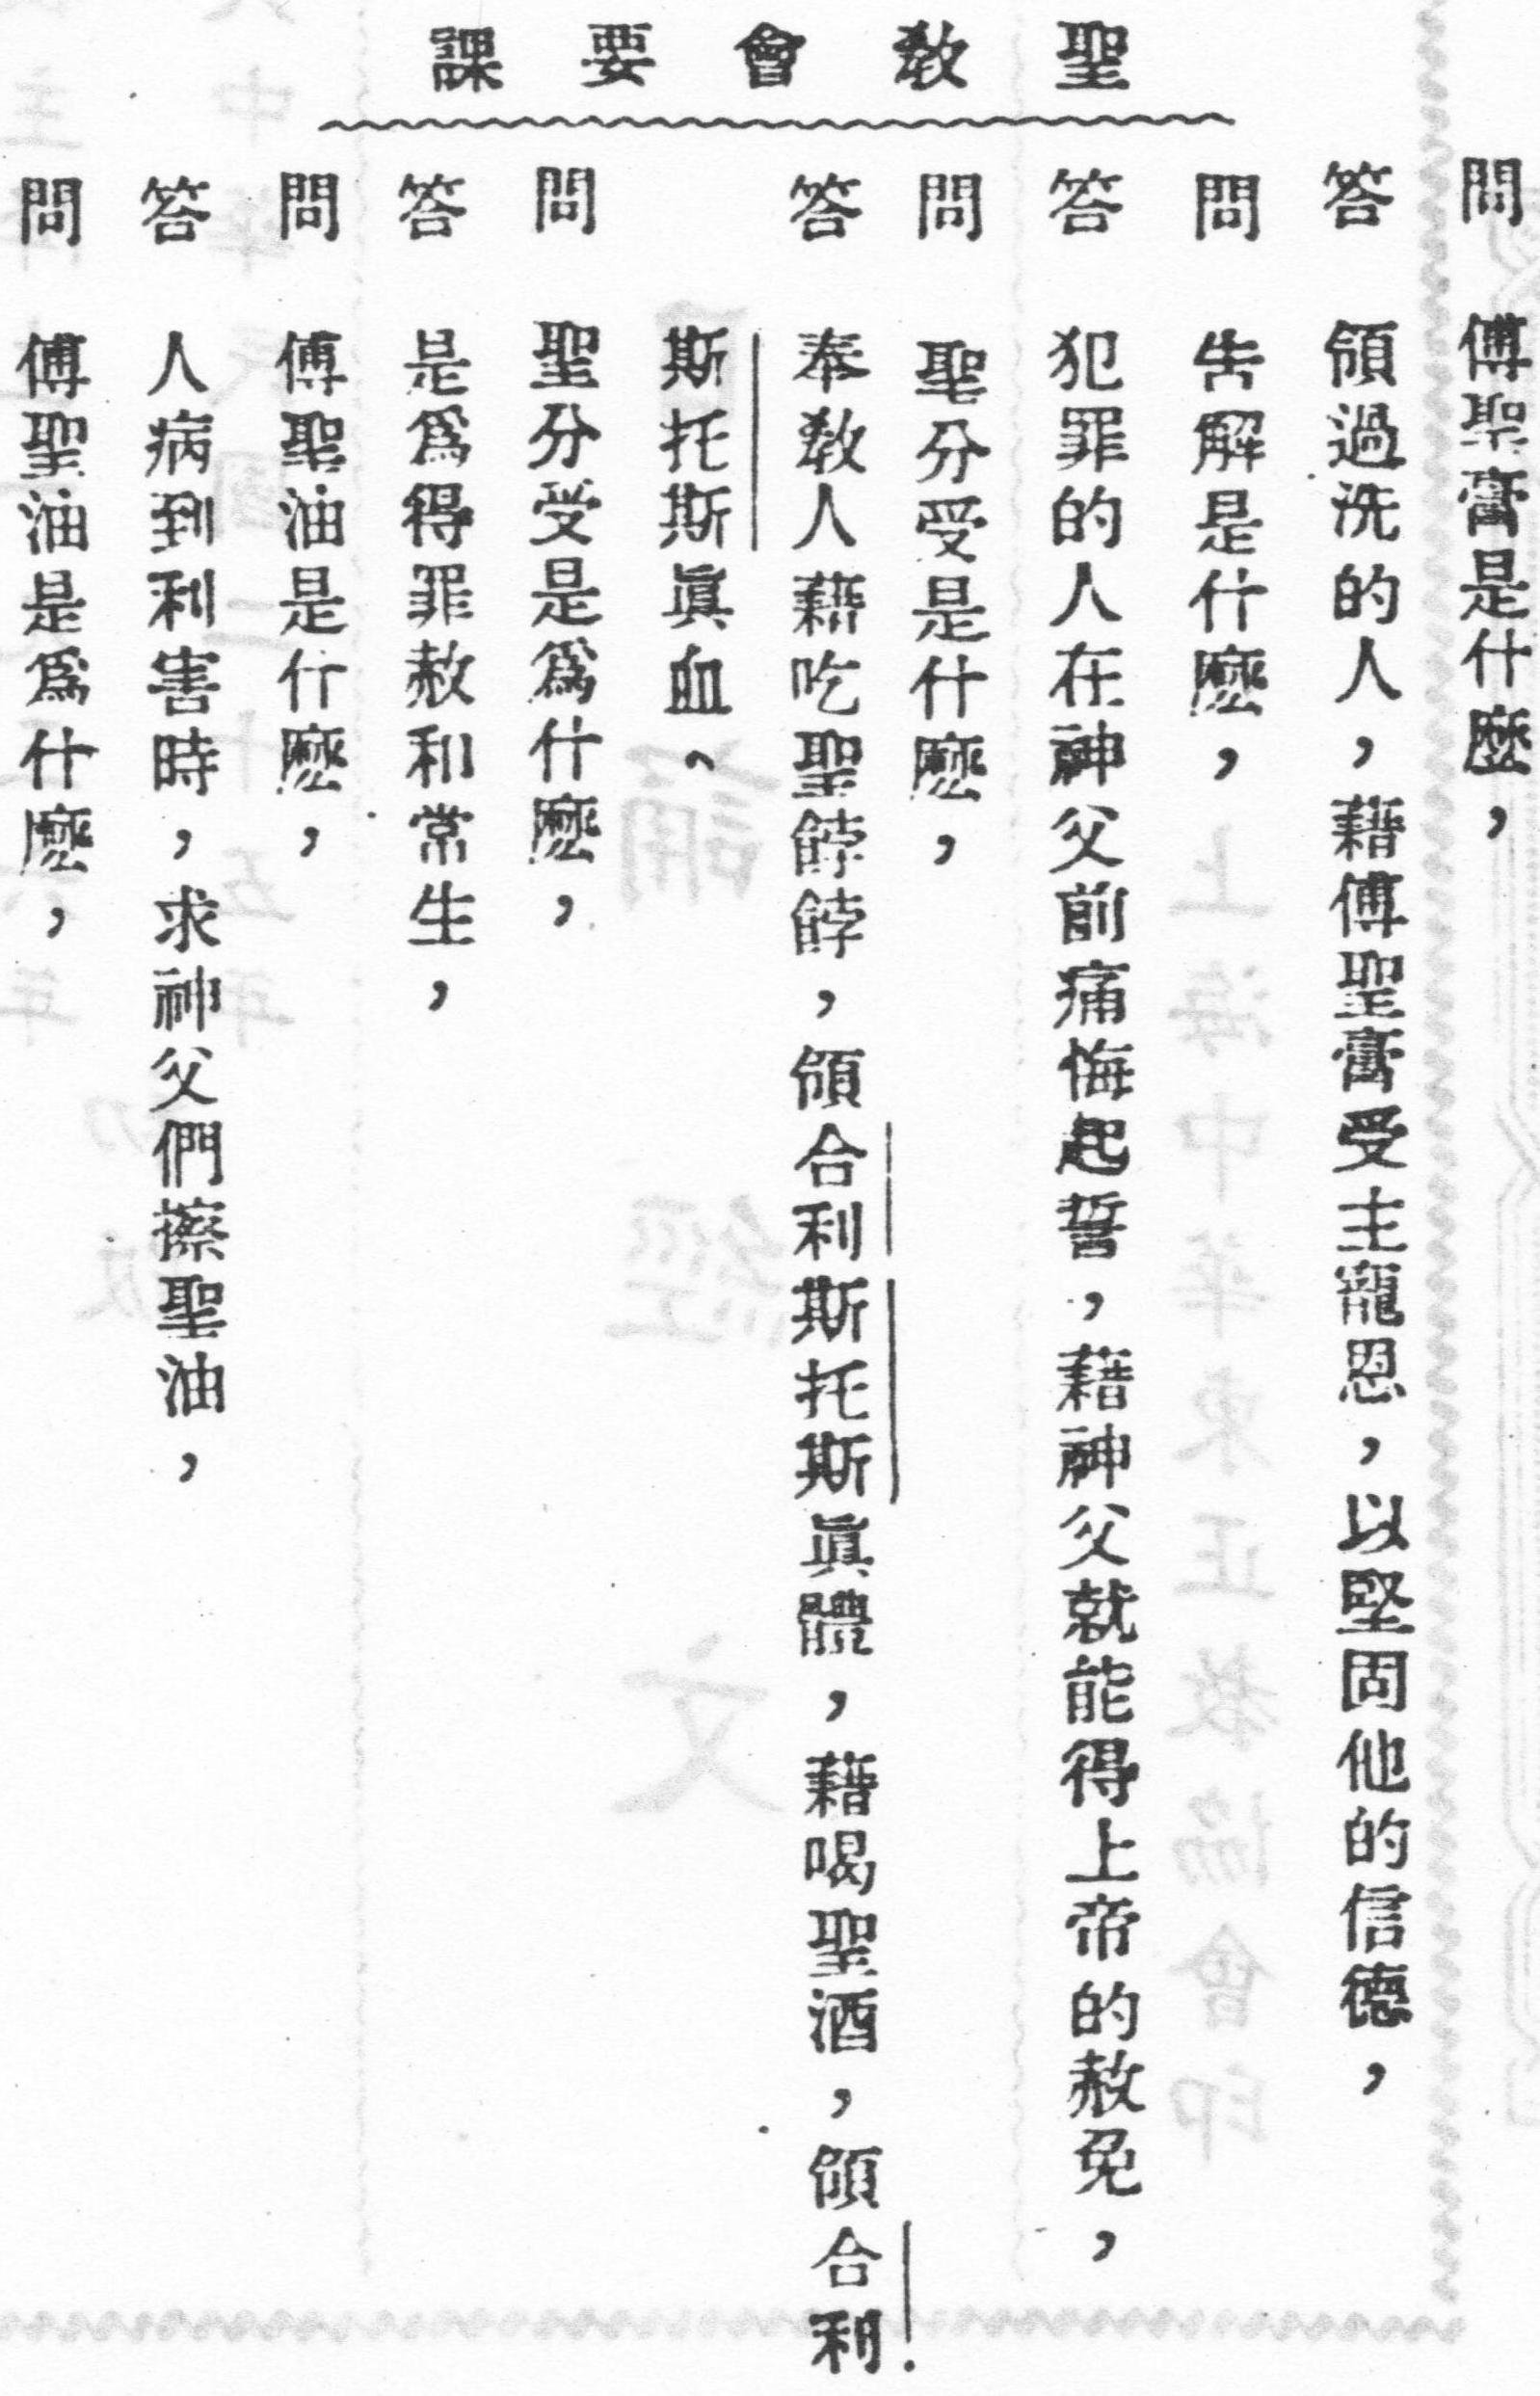 聖教會要課
問　傅聖膏是什麼，
答　領過洗的人，藉傅聖膏受主寵恩，以堅固他的信德，
問　告解是什麼，
答　犯罪的人在神父前痛悔起誓，藉神父就能得上帝的赦免，
問　聖分受是什麼，
答　奉教人藉吃聖餑餑，領合利斯托斯眞體，藉喝聖酒，領合利
斯托斯眞血、
問　聖分受是爲什麼，
答　是爲得罪赦和常生，
問　傅聖油是什麼，
答　人病到利害時，求神父們擦聖油，
問　傅聖油是爲什麼，
上海中華東正教協會印
誦經文